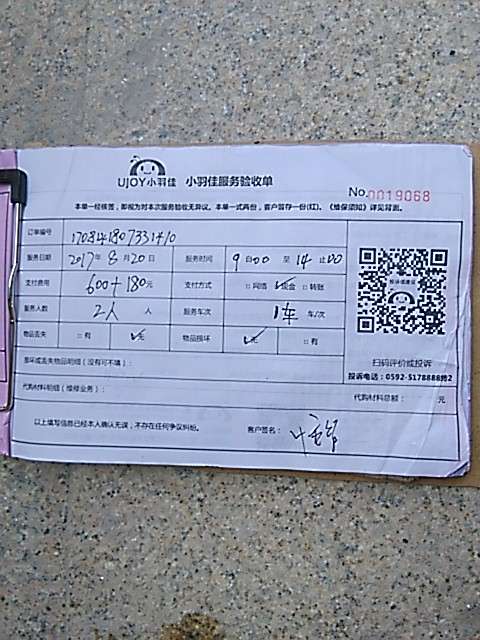 UJOY小羽佳 小羽佳服务验收单
No.0019068
本单一经核签，即视为对本次服务验收无异议。本单一式两份，客户留存一份(红)。《维保须知》详见背面。
订单编号
服务日期 2017年8月20日 服务时间 9时00 至 14止00
支付费用 600+180元 支付方式 □网络 ☑现金 □转账
服务人数 2人 人 服务车次 1车 车/次
物品丢失 □有 ☑无 物品损坏 ☑无 □有
损坏或丢失物品明细（没有可不填）：
代购材料明细（维修业务）： 代购材料总额： 元
以上填写信息已经本人确认无误，不存在任何争议纠纷。 客户签名：
扫码评价或投诉
投诉电话：0592-5178888转2